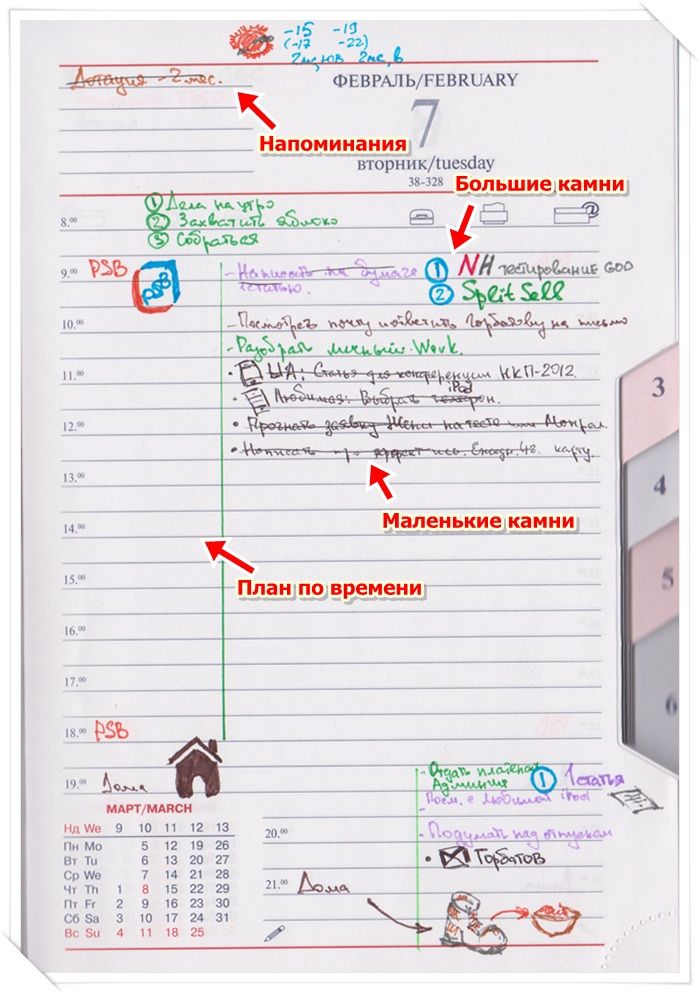 -15 -19
(-17 -22)
Дотация - 2 мес.
ФЕВРАЛЬ/FEBRUARY
7
Напоминания
вторник/tuesday
38-328
Большие камни
① Дела на утро
8.00 ② Захватить яблоко
③ Собраться
9.00 PSB PSB - Написать на бумаге ① NH тестирование GOD
статью. ② Split Sell
10.00 - Посмотреть почту и ответить Горбатову на письмо
- Разобрать личный Work.
11.00 • ША: Статья для конференции НКП-2012.
iPod
• Любимая: Выбрать телефон.
12.00 • Прогнать заявку Жени на тесте или
• Написать про эффект карту.
13.00
Маленькие камни
14.00
План по времени
15.00
16.00
17.00
18.00 PSB
19.00 Дома
- Отдать
① 1 статья
с Любимой iPod
- Подумать над отпуском
• Горбатов
МАРТ/MARCH
Нд We 9 10 11 12 13
Пн Mo 5 12 19 26
Вт Tu 6 13 20 27
Ср We 7 14 21 28
Чт Th 1 8 15 22 29
Пт Fr 2 9 16 23 30
Сб Sa 3 10 17 24 31
Вс Su 4 11 18 25
20.00
21.00 Дома
3
4
5
6